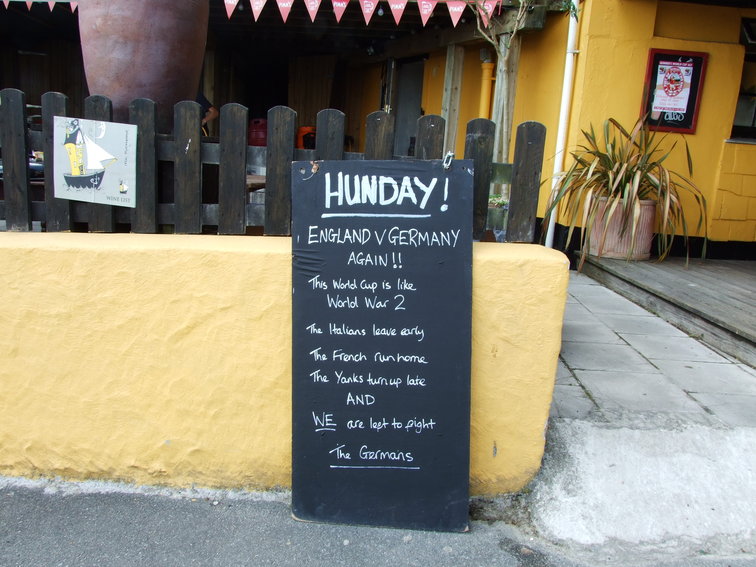 HUNDAY!
ENGLAND V GERMANY
AGAIN!!
This World Cup is like
World War 2
The Italians leave early
The French run home
The Yanks turn up late
AND
WE are left to fight
The Germans
WINE LIST